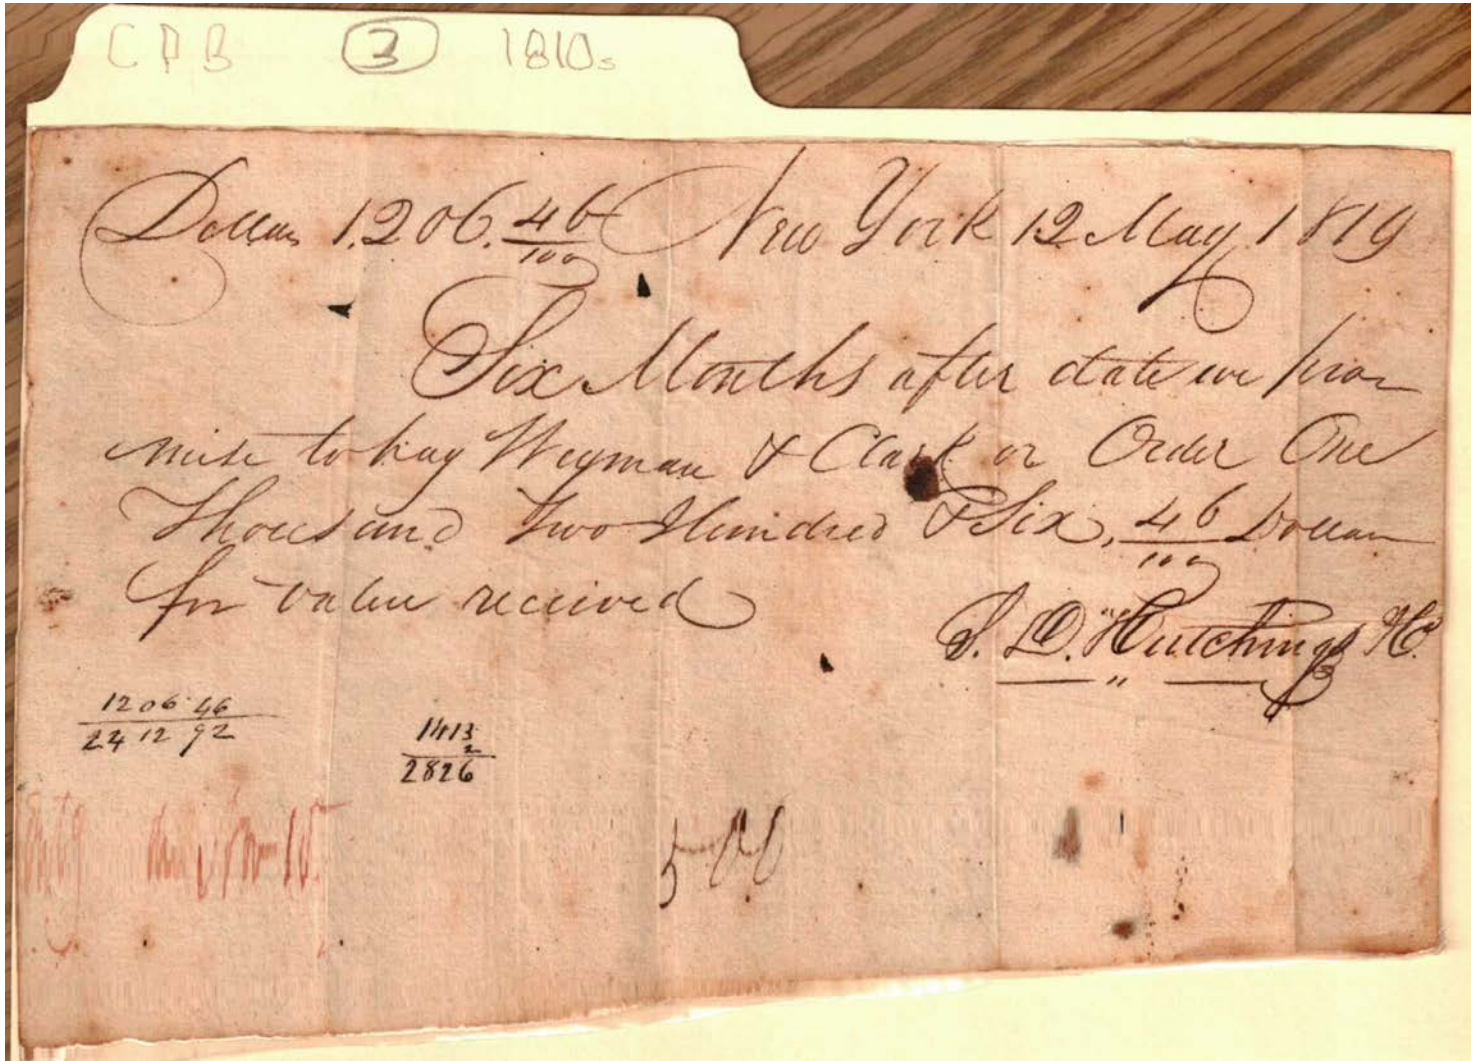 CPB 3 1810s
Dollars 1,206.46/100 New York 12 May 1819
Six Months after date we pro
mise to pay Weyman & Clark or Order One
Thousand Two Hundred & Six, 46/100 Dollars
for value received
S. D. Hutchings
1206.46
24 12 92
1413
2
2826
500